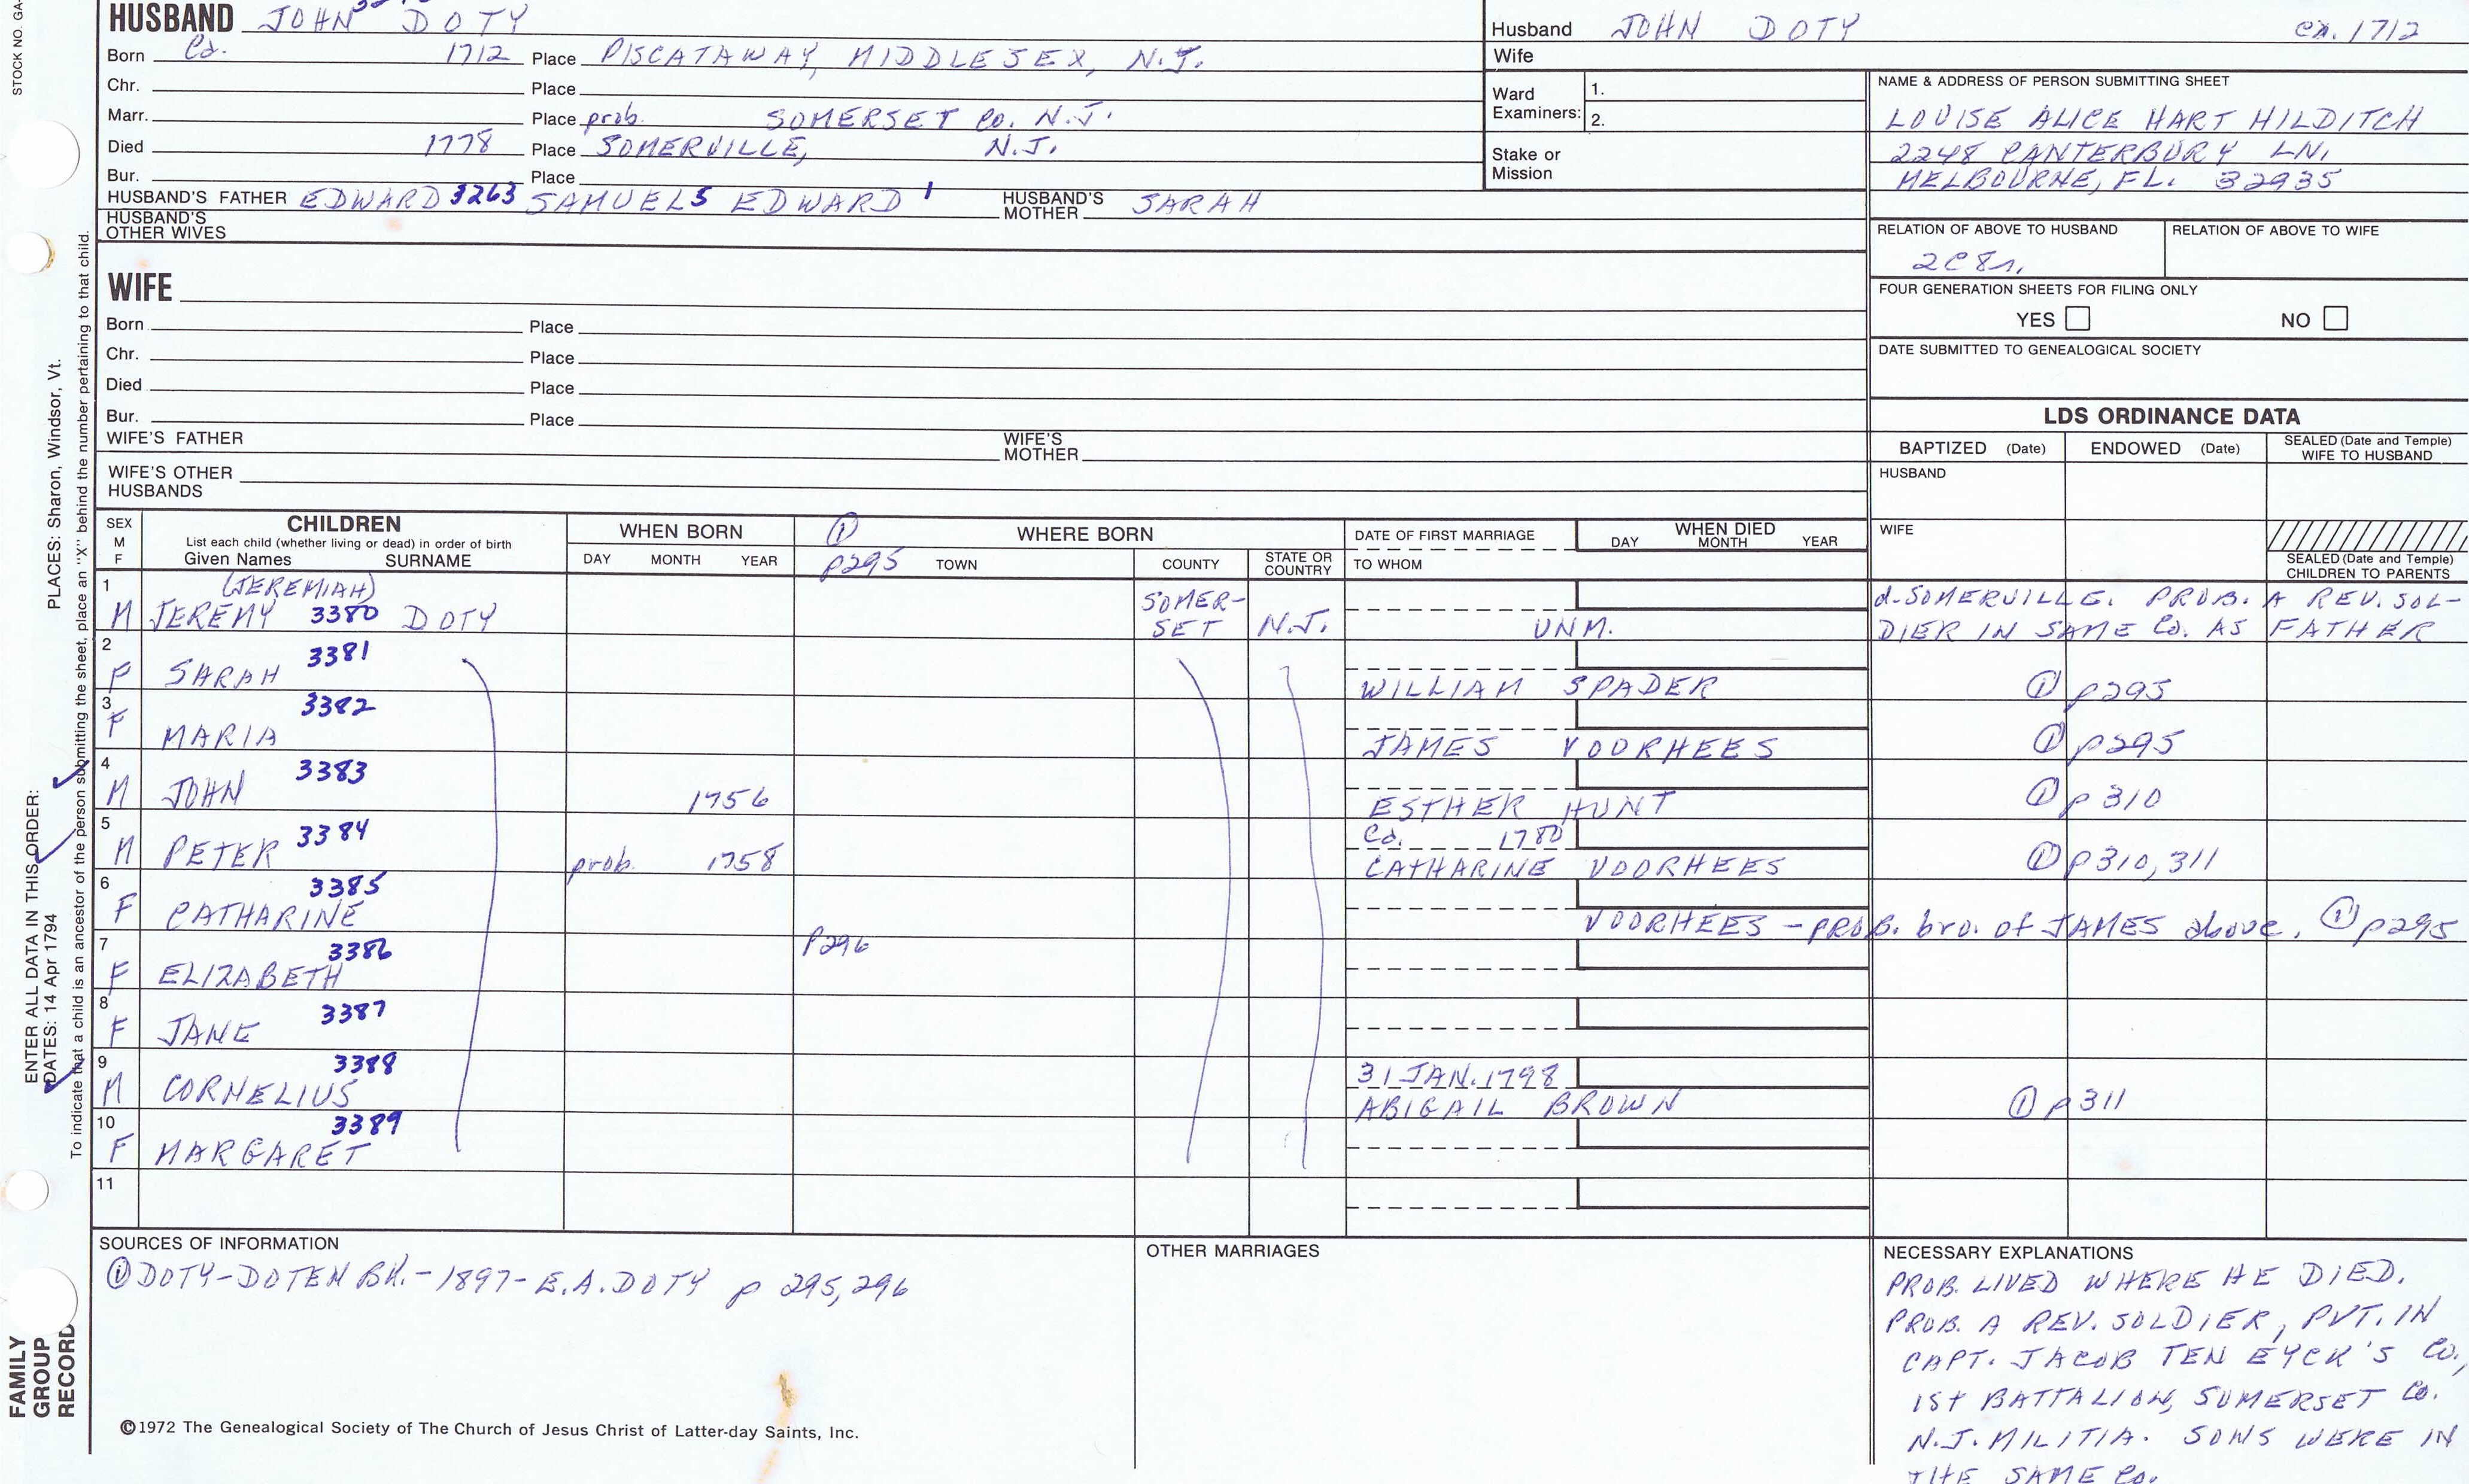 HUSBAND JOHN DOTY
Born Ca. 1712 Place PISCATAWAY, MIDDLESEX, N.J.
Chr. Place
Marr. Place prob. SOMERSET Co. N.J.
Died 1778 Place SOMERVILLE, N.J.
Bur. Place
HUSBAND'S FATHER EDWARD 3263 SAMUEL 5 EDWARD 1 HUSBAND'S MOTHER SARAH
HUSBAND'S OTHER WIVES
Husband JOHN DOTY ca. 1712
Wife
Ward Examiners: 1.
2.
Stake or Mission
NAME & ADDRESS OF PERSON SUBMITTING SHEET
LOUISE ALICE HART HILDITCH
2248 CANTERBURY LN.
MELBOURNE, FL. 32935
RELATION OF ABOVE TO HUSBAND RELATION OF ABOVE TO WIFE
2C8r.
FOUR GENERATION SHEETS FOR FILING ONLY
YES NO
DATE SUBMITTED TO GENEALOGICAL SOCIETY
WIFE
Born Place
Chr. Place
Died Place
Bur. Place
WIFE'S FATHER WIFE'S MOTHER
WIFE'S OTHER HUSBANDS
LDS ORDINANCE DATA
BAPTIZED (Date) ENDOWED (Date) SEALED (Date and Temple) WIFE TO HUSBAND
HUSBAND
WIFE
SEALED (Date and Temple) CHILDREN TO PARENTS
SEX M F CHILDREN WHEN BORN ① WHERE BORN DATE OF FIRST MARRIAGE WHEN DIED
List each child (whether living or dead) in order of birth
Given Names SURNAME DAY MONTH YEAR p295 TOWN COUNTY STATE OR COUNTRY TO WHOM DAY MONTH YEAR
1 (JEREMIAH) SOMER- d. SOMERVILLE. PROB. A REV. SOL-
M JEREMY 3380 DOTY SET N.J. UNM. DIER IN SAME Co. AS FATHER
2 3381
F SARAH WILLIAM SPADER ① p295
3 3382
F MARIA JAMES VOORHEES ① p295
4 3383
M JOHN 1756 ESTHER HUNT ① p 310
5 3384 Ca. 1780
M PETER prob. 1758 CATHARINE VOORHEES ① p310, 311
6 3385
F CATHARINE VOORHEES - PROB. bro. of JAMES above. ① p295
7 3386 P296
F ELIZABETH
8 3387
F JANE
9 3388 31 JAN. 1798
M CORNELIUS ABIGAIL BROWN ① p 311
10 3389
F MARGARET
11
SOURCES OF INFORMATION
① DOTY-DOTEN BK.-1897-E.A.DOTY p 295, 296
OTHER MARRIAGES
NECESSARY EXPLANATIONS
PROB. LIVED WHERE HE DIED.
PROB. A REV. SOLDIER, PVT. IN
CAPT. JACOB TEN EYCK'S Co.,
1st BATTALION, SOMERSET Co.
N.J. MILITIA. SONS WERE IN
THE SAME Co.
©1972 The Genealogical Society of The Church of Jesus Christ of Latter-day Saints, Inc.
STOCK NO. GA-
ENTER ALL DATA IN THIS ORDER:
DATES: 14 Apr 1794 PLACES: Sharon, Windsor, Vt.
To indicate that a child is an ancestor of the person submitting the sheet, place an "X" behind the number pertaining to that child.
FAMILY GROUP RECORD